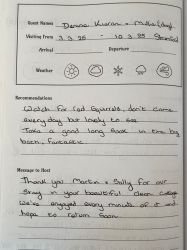 Guest Names Donna Kieran + Millie (dog)
Visiting From 3.3.25 - 10.3.25
Arrival Departure
Weather
Recommendations
Watch for Red Squirrels, don't come
every day but lovely to see
Take a good long soak in the big
bath, fantastic.
Message to Host
Thank you Martin & Sally for our
stay in your beautiful clean cottage
We've enjoyed every minute of it and
hope to return soon.